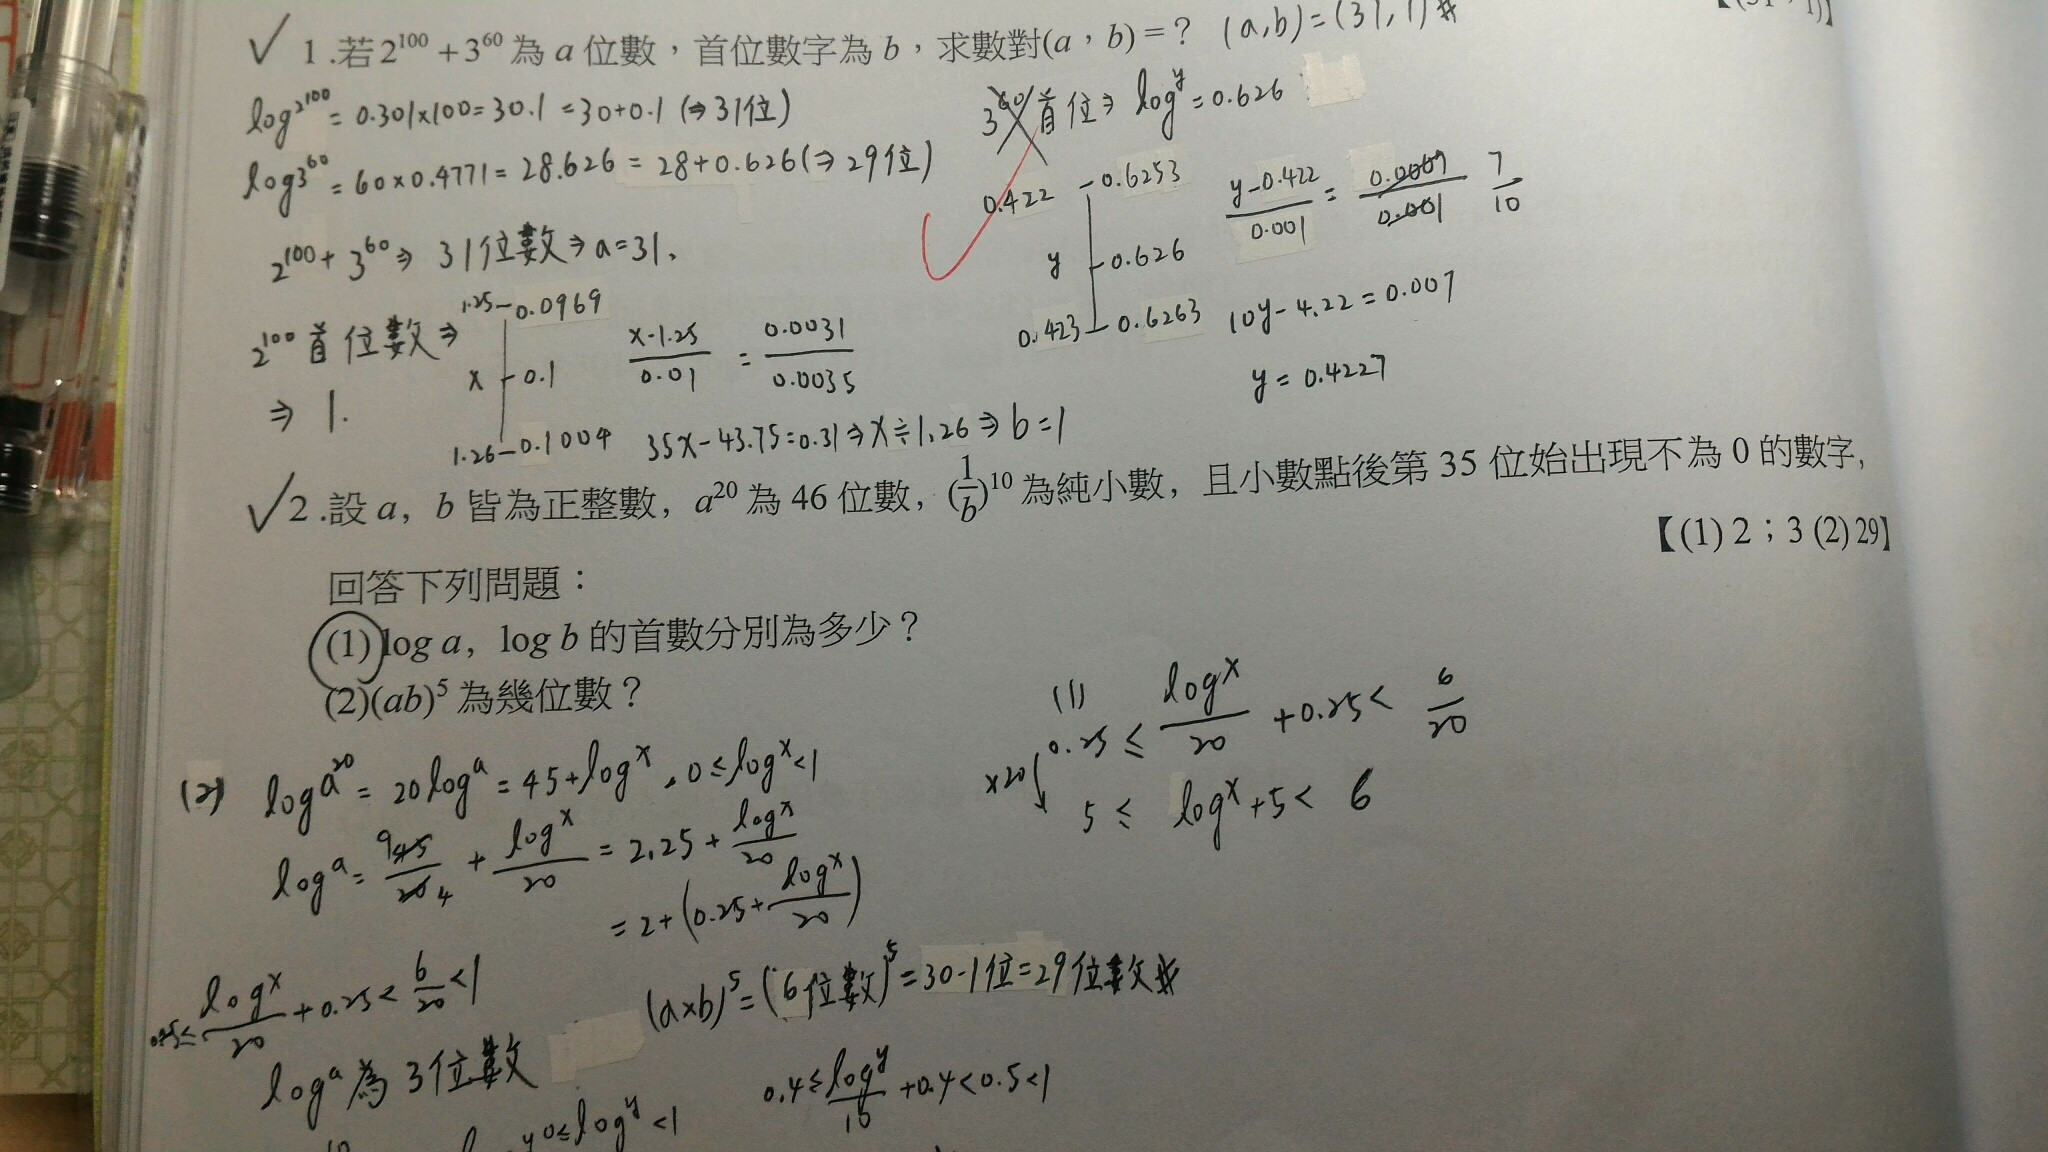 √ 1.若2^100 + 3^60 為 a 位數，首位數字為 b，求數對(a，b) = ? (a,b)=(31,1)#
log2^100 = 0.301×100 = 30.1 = 30+0.1 (⇒31位)
log3^60 = 60×0.4771 = 28.626 = 28+0.626 (⇒29位)
2^100 + 3^60 ⇒ 31位數 ⇒ a=31,
2^100 首位數 ⇒
⇒ 1.
1.25 - 0.0969
x - 0.1
1.26 - 0.1004
(x-1.25)/0.01 = 0.0031/0.0035
35x - 43.75 = 0.31 ⇒ x≒1.26 ⇒ b=1
3^60 首位 ⇒ log^y = 0.626
0.422 - 0.6253
y - 0.626
0.423 - 0.6263
(y-0.422)/0.001 = 0.0007/0.001 7/10
10y - 4.22 = 0.007
y = 0.4227
√ 2.設 a，b 皆為正整數，a^20 為 46 位數，(1/b)^10 為純小數，且小數點後第 35 位始出現不為 0 的數字，
【(1) 2；3 (2) 29】
回答下列問題：
(1) log a，log b 的首數分別為多少？
(2)(ab)^5 為幾位數？
(2) log a^20 = 20log^a = 45+log^x, 0≤log^x<1
log^a = 45/20 9/4 + log^x/20 = 2.25 + log^x/20
= 2+(0.25+log^x/20)
0.25≤ log^x/20 + 0.25 < 6/20 < 1
log^a 為 3位數
(1)
0.25 ≤ log^x/20 + 0.25 < 6/20
×20
5 ≤ log^x + 5 < 6
(a×b)^5 = (6位數)^5 = 30-1位 = 29位數#
0.4 ≤ log^y/10 + 0.4 < 0.5 < 1
0≤log^y<1